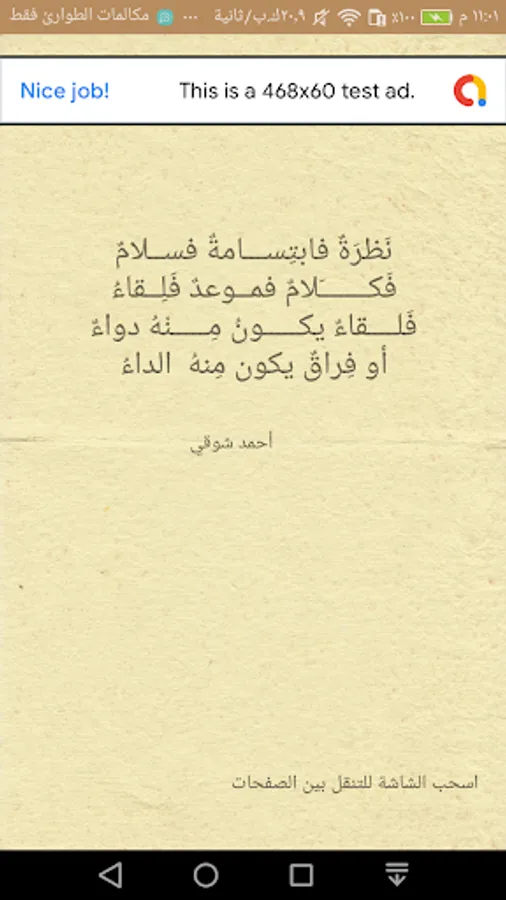 ١١:٠١ م ١٠٠٪ ٢٠.٩ك.ب/ثانية ... مكالمات الطوارئ فقط
Nice job! This is a 468x60 test ad.
نَظرَةٌ فابتِســـامةٌ فســلامٌ
فَكـــــَلامٌ فمــوعدٌ فَلِــقاءُ
فَلـــقاءٌ يكـــونُ مِـــنْهُ دواءٌ
أو فِراقٌ يكون مِنهُ الداءُ
أحمد شوقي
اسحب الشاشة للتنقل بين الصفحات